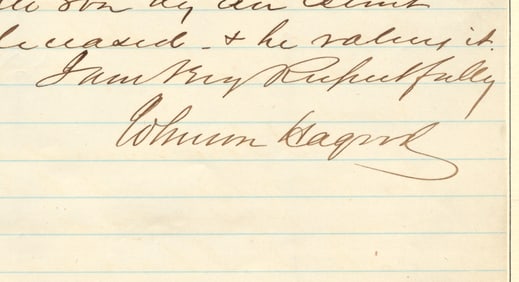 son by an Aunt
deceased - & he values it.
I am Very Respectfully
Johnson Hagood